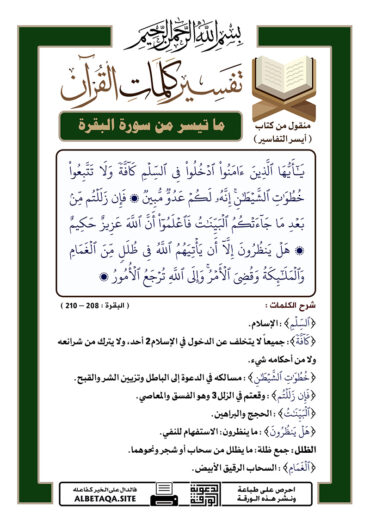 بسم الله الرحمن الرحيم
تفسير كلمات القرآن
ما تيسر من سورة البقرة
منقول من كتاب
( أيسر التفاسير )
يَـٰٓأَيُّهَا ٱلَّذِينَ ءَامَنُوا۟ ٱدْخُلُوا۟ فِى ٱلسِّلْمِ كَآفَّةً وَلَا تَتَّبِعُوا۟
خُطُوَٰتِ ٱلشَّيْطَـٰنِ ۚ إِنَّهُۥ لَكُمْ عَدُوٌّ مُّبِينٌ ۞ فَإِن زَلَلْتُم مِّنۢ
بَعْدِ مَا جَآءَتْكُمُ ٱلْبَيِّنَـٰتُ فَٱعْلَمُوٓا۟ أَنَّ ٱللَّهَ عَزِيزٌ حَكِيمٌ
۞ هَلْ يَنظُرُونَ إِلَّآ أَن يَأْتِيَهُمُ ٱللَّهُ فِى ظُلَلٍ مِّنَ ٱلْغَمَامِ
وَٱلْمَلَـٰٓئِكَةُ وَقُضِىَ ٱلْأَمْرُ ۚ وَإِلَى ٱللَّهِ تُرْجَعُ ٱلْأُمُورُ ۞
شرح الكلمات :
( البقرة : 208 – 210 )
﴿ٱلسِّلْمِ﴾ : الإسلام.
﴿كَآفَّةً﴾ : جميعاً لا يتخلف عن الدخول في الإسلام2 أحد، ولا يترك من شرائعه
ولا من أحكامه شيء.
﴿خُطُوَٰتِ ٱلشَّيْطَـٰنِ﴾ : مسالكه في الدعوة إلى الباطل وتزيين الشر والقبح.
﴿فَإِن زَلَلْتُم﴾ : وقعتم في الزلل3 وهو الفسق والمعاصي.
﴿ٱلْبَيِّنَـٰتُ﴾ : الحجج والبراهين.
﴿هَلْ يَنظُرُونَ﴾ : ما ينظرون: الاستفهام للنفي.
الظلل : جمع ظلة: ما يظلل من سحاب أو شجر ونحوهما.
﴿ٱلْغَمَامِ﴾ : السحاب الرقيق الأبيض.
احرص على طباعة
ونشر هذه الورقة
الورقة الدعوية
فالدال على الخير كفاعله
ALBETAQA.SITE